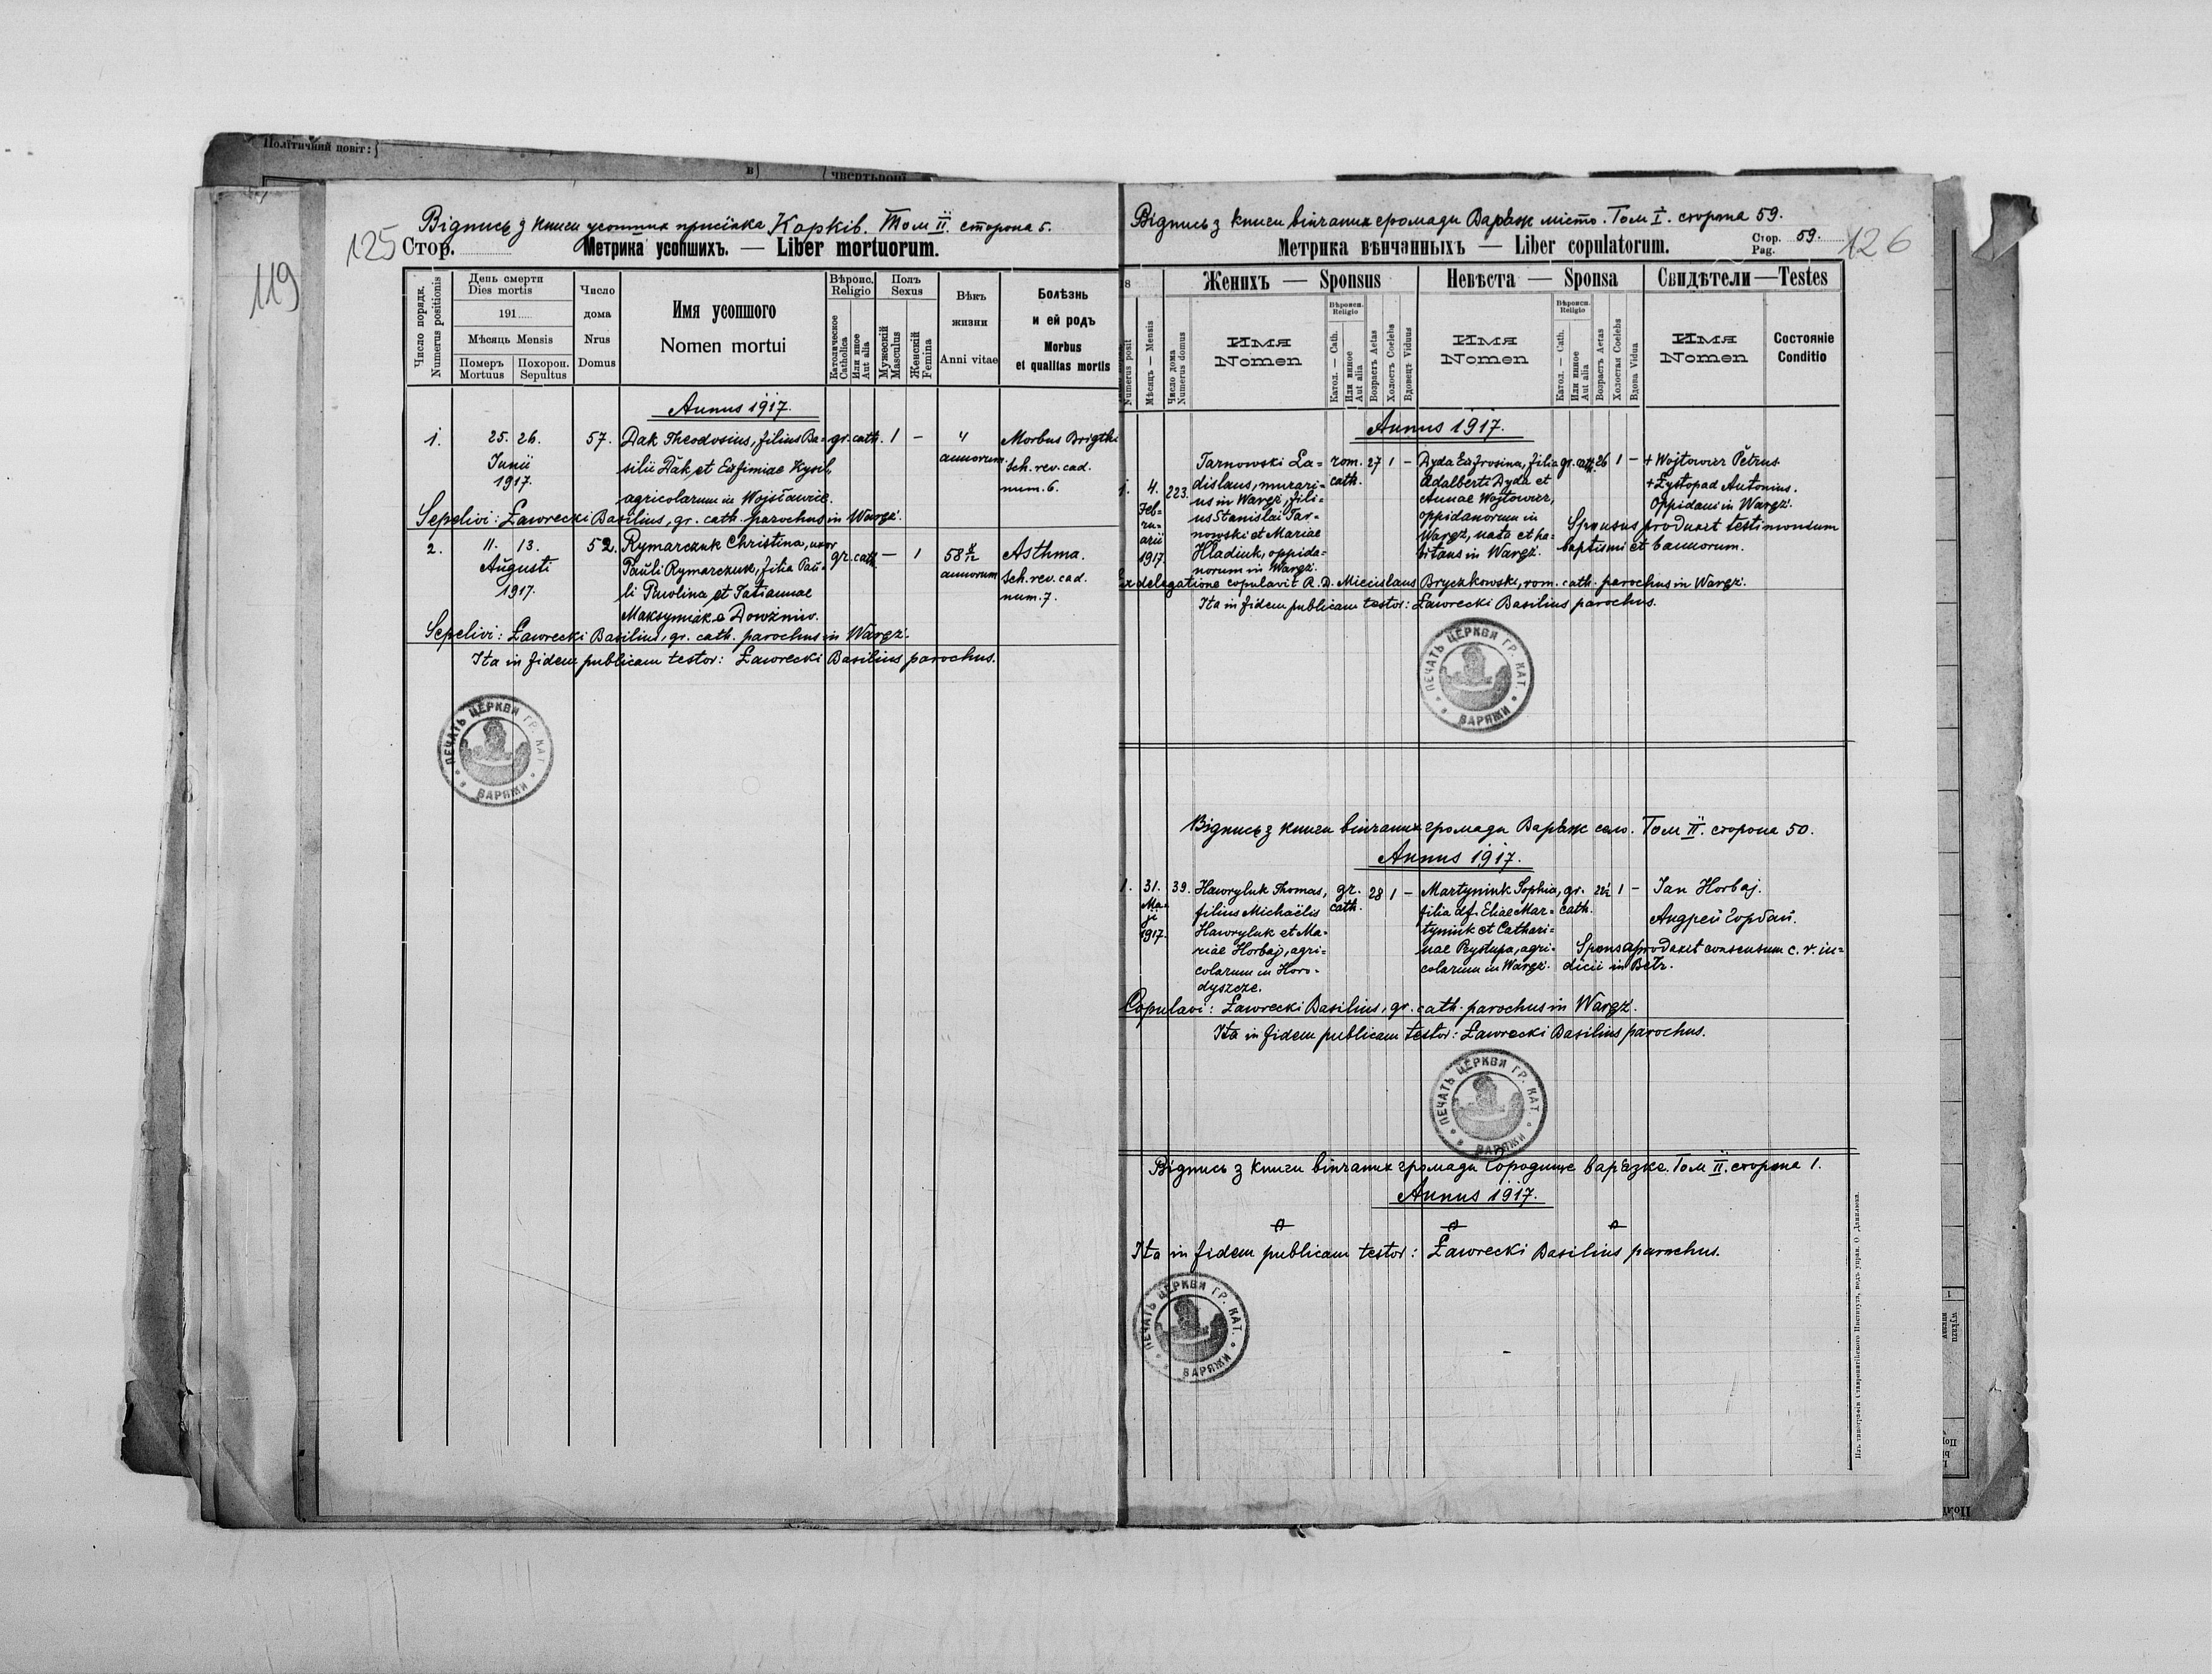 Полїтичний повіт:
в) (чвертьрочі
119
125
Відпись з книги усопших присілка Карків. Том II. сторона 5.
Стор. Метрика усопшихъ. — Liber mortuorum.
Число порядк.
Numerus positionis
День смерти
Dies mortis
191
Мѣсяць Mensis
Померъ
Mortuus
Похорон.
Sepultus
Число
дома
Nrus
Domus
Имя усопшого
Nomen mortui
Вѣроис.
Religio
Католическое
Catholica
Или иное
Aut alia
Полъ
Sexus
Мужескій
Masculus
Женскій
Femina
Вѣкъ
жизни
Anni vitae
Болѣзнь
и ей родъ
Morbus
et qualitas mortis
Annus 1917.
1. 25. 26. 57. Dak Theodosius, filius Ba- gr. cath. 1 – 4 Morbus Brigthi
Junii silii Dăk et Eufimiae Kysil, annorum Sch. rev. cad.
1917. agricolarum in Wojsławice. num. 6.
Sepelivi: Ławrecki Basilius, gr. cath. parochus in Waręż.
2. 11. 13. 52. Rymarczuk Christina, uxor gr. cath. – 1 58 Asthma.
Augusti Pauli Rymarczuk, filia Pau- annorum Sch. rev. cad.
1917. li et Tatiannae num. 7.
Maksymiak
Sepelivi: Ławrecki Basilius, gr. cath. parochus in Waręż.
Ita in fidem publicam testor: Ławrecki Basilius parochus.
ПЕЧАТЬ ЦЕРКВИ ГР. КАТ. В ВАРЯЖИ
126
Відпись з книги вінчаних громади Варяж місто. Том I. сторона 59.
Метрика вѣнчанныхъ — Liber copulatorum.
Стор. 59.
Pag.
18
Numerus posit
Мѣсяць — Mensis
Число дома
Numerus domus
Женихъ — Sponsus
Имя
Nomen
Вѣроисп.
Religio
Катол. — Cath.
Или иное
Aut alia
Возрастъ Aetas
Холостъ Coelebs
Вдовецъ Viduus
Невѣста — Sponsa
Имя
Nomen
Вѣроисп.
Religio
Катол. — Cath.
Или иное
Aut alia
Возрастъ Aetas
Холостая Coelebs
Вдова Vidua
Свидѣтели — Testes
Имя
Nomen
Состояніе
Conditio
Annus 1917.
Tarnowski La- rom. 27 1 – Dyda Eufrosina, filia gr. cath. 26 1 – + Wojtowicz Petrus
1. 4. 223. dislaus, murari- cath. Adalberti Dyda et + Łystopad Antonius.
Feb- us in Waręż, fili- Annae Wojtowicz, Oppidani in Waręż.
ru- us Stanislai Tar- oppidanorum in Sponsus produxit testimonium
arii nowski et Mariae Waręż, nata et ha- baptismi et bannorum.
1917. Hladiuk, oppida- bitans in Waręż.
norum in Waręż.
Ex delegatione copulavit R. D. Miecislaus Bryczkowski, rom. cath. parochus in Waręż.
Ita in fidem publicam testor: Ławrecki Basilius parochus.
ПЕЧАТЬ ЦЕРКВИ ГР. КАТ. В ВАРЯЖИ
Відпись з книги вінчаних громади Варяж село. Том II. сторона 50.
Annus 1917.
1. 31. 39. Hawryluk Thomas, gr. 28 1 – Martyniuk Sophia, gr. 22½ 1 – Jan Horbaj.
Ma- filius Michaëlis cath. filia df. Eliae Mar- cath. Андрей Горбай.
ji Hawryluk et Ma- tyniuk et Cathari-
1917. riae Horbaj, agri- nae Prystupa, agri- Sponsa produxit consensum c. r. iu-
colarum in Horo- colarum in Waręż. dicii in Bełz.
dyszcze.
Copulavi: Ławrecki Basilius, gr. cath. parochus in Waręż.
Ita in fidem publicam testor: Ławrecki Basilius parochus.
ПЕЧАТЬ ЦЕРКВИ ГР. КАТ. В ВАРЯЖИ
Відпись з книги вінчаних громади Городище варязке. Том II. сторона 1.
Annus 1917.
Ita in fidem publicam testor: Ławrecki Basilius parochus.
ПЕЧАТЬ ЦЕРКВИ ГР. КАТ. В ВАРЯЖИ